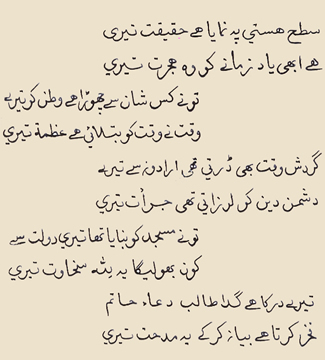 سطح ھستي پہ نمایا ھے حقیقت تیری
ھے ابھی یاد زمانے کو وہ ھجرت تیري
تونے کس شان سے چھوڑا ھے وطن کو تیرے
وقت نے وقت کو بتلائي ھے عظمة تیري
گردش وقت بھی ڈرتي تھی ارادونہ سے تیرے
دشمن دین کو لرزاتي تھی جرأت تیري
تونے مسجد کو بنایا تھا تیري دولت سے
کون بھولیگا یہ سخاوت تیري
تیرے در کا ھے گدا طالب دعاء حاتم
فخر کرتا ھے بیانہ کر کے یہ مدحت تیري